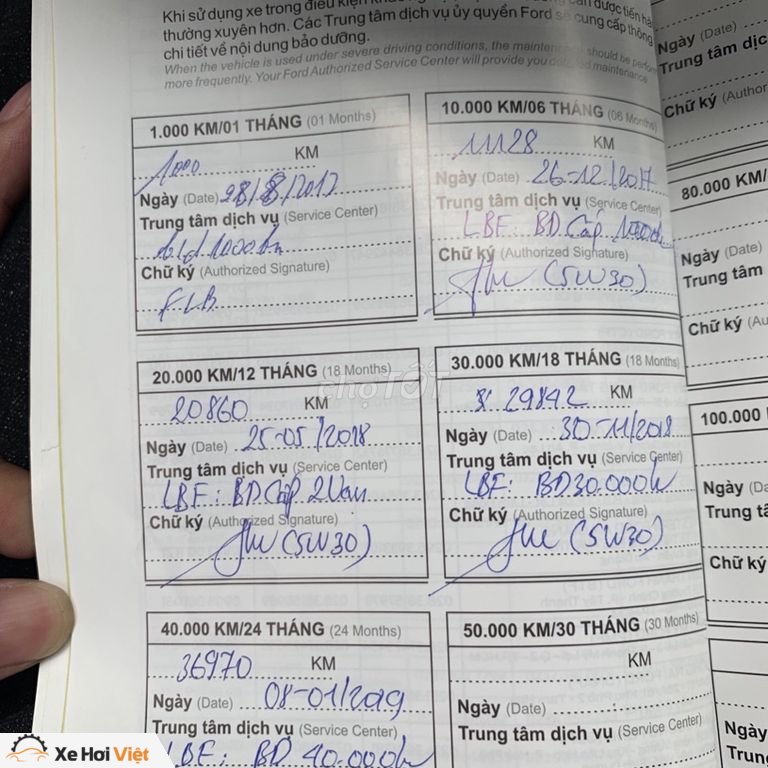 Khi sử dụng xe trong điều kiện
cần được tiến hà
thường xuyên hơn. Các Trung tâm dịch vụ ủy quyền Ford sẽ cung cấp thông
chi tiết về nội dung bảo dưỡng.
When the vehicle is used under severe driving conditions, the maintenance should be perform
more frequently. Your Ford Authorized Service Center will provide you maintenance
1.000 KM/01 THÁNG (01 Months)
1000 KM
Ngày (Date) 28/8/2017
Trung tâm dịch vụ (Service Center)
Chữ ký (Authorized Signature)
FLB
10.000 KM/06 THÁNG (06 Months)
11128 KM
Ngày (Date) 26-12/2017
Trung tâm dịch vụ (Service Center)
LBF: BD Cấp
Chữ ký (Authorized Signature)
(5W30)
20.000 KM/12 THÁNG (18 Months)
20860 KM
Ngày (Date) 25-05/2018
Trung tâm dịch vụ (Service Center)
LBF: BD Cấp 2 Vạn
Chữ ký (Authorized Signature)
(5W30)
30.000 KM/18 THÁNG (18 Months)
29842 KM
Ngày (Date) 30-11/2018
Trung tâm dịch vụ (Service Center)
LBF: BD 30.000k
Chữ ký (Authorized Signature)
(5W30)
40.000 KM/24 THÁNG (24 Months)
36970 KM
Ngày (Date) 08-01/2019
Trung tâm dịch vụ (Service Center)
LBF: BD 40.000k
50.000 KM/30 THÁNG (30 Months)
KM
Ngày (Date)
Trung tâm dịch vụ (Service Center)
Ngày (Date)
Trung tâm dịc
Chữ ký (Author
80.000 KM/
Ngày (Date)
Trung tâm
Chữ ký (Au
100.000
Ngày (Da
Trung tâ
Chữ ký
Ngày
Trung
chợTỐT
Xe Hơi Việt